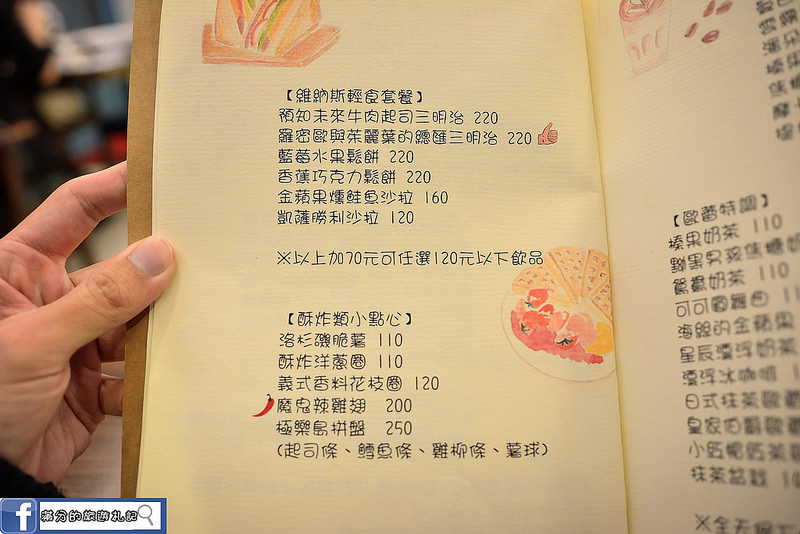 【維納斯輕食套餐】
預知未來牛肉起司三明治 220
羅密歐與茱麗葉的總匯三明治 220
藍莓水果鬆餅 220
香蕉巧克力鬆餅 220
金蘋果燻鮭魚沙拉 160
凱薩勝利沙拉 120
※以上加70元可任選120元以下飲品
【酥炸類小點心】
洛杉磯脆薯 110
酥炸洋蔥圈 110
義式香料花枝圈 120
魔鬼辣雞翅 200
極樂島拼盤 250
(起司條、鱈魚條、雞柳條、薯球)
【歐蕾特調】
榛果奶茶 110
黝黑男孩焦糖奶
鴛鴦奶茶 110
可可圓舞曲 11
海絲的金蘋果
星辰漂浮奶茶
漂浮冰咖啡 1
日式抹茶歐
皇家伯爵歐
抹茶盆栽 1
f 滿分的旅遊札記